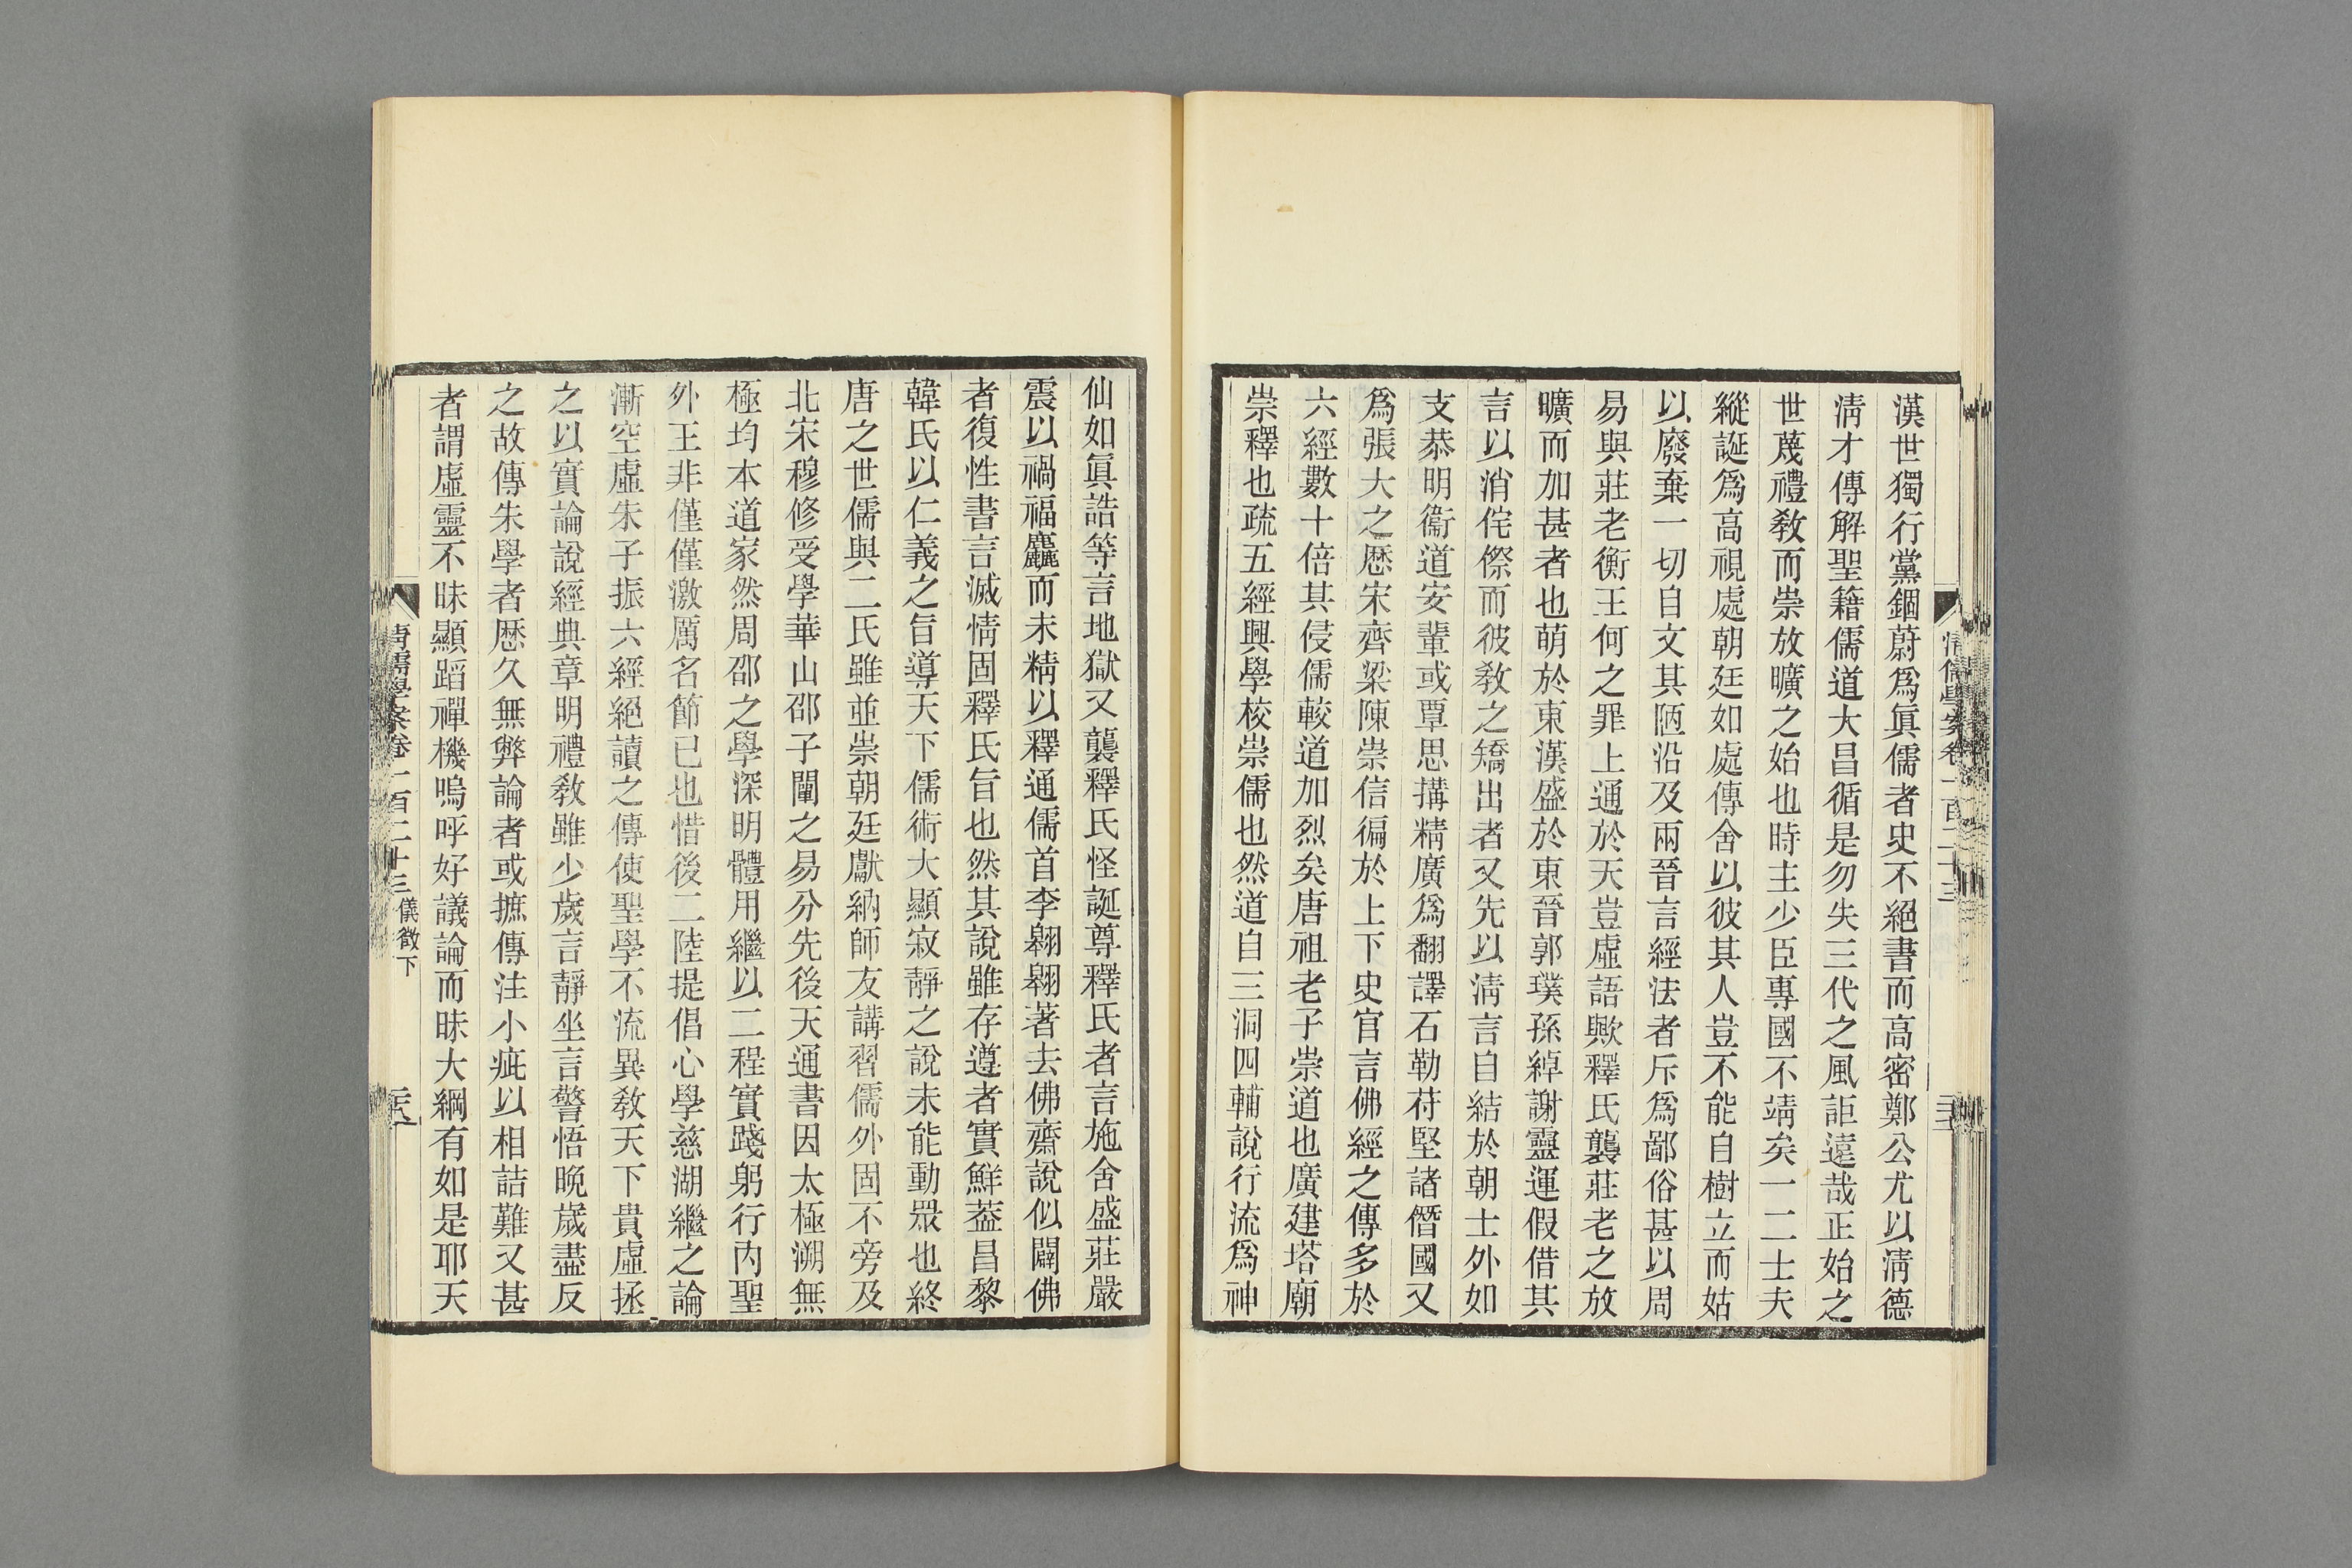 漢世獨行黨錮蔚爲眞儒者史不絕書而高密鄭公尤以淸德
淸才傳解聖籍儒道大昌循是勿失三代之風詎遠哉正始之
世蔑禮敎而崇放曠之始也時主少臣專國不靖矣一二士夫
縱誕爲高視處朝廷如處傳舍以彼其人豈不能自樹立而姑
以廢棄一切自文其陋沿及兩晉言經法者斥爲鄙俗甚以周
易與莊老衡王何之罪上通於天豈虛語歟釋氏襲莊老之放
曠而加甚者也萌於東漢盛於東晉郭璞孫綽謝靈運假借其
言以消侘傺而彼敎之矯出者又先以淸言自結於朝士外如
支恭明衞道安輩或覃思搆精廣爲翻譯石勒苻堅諸僭國又
爲張大之歷宋齊梁陳崇信徧於上下史官言佛經之傳多於
六經數十倍其侵儒較道加烈矣唐祖老子崇道也廣建塔廟
崇釋也疏五經興學校崇儒也然道自三洞四輔說行流爲神
淸儒學案卷一百二十三
仙如眞誥等言地獄又襲釋氏怪誕尊釋氏者言施舍盛莊嚴
震以禍福麤而未精以釋通儒首李翱翱著去佛齋說似闢佛
者復性書言滅情固釋氏旨也然其說雖存遵者實鮮蓋昌黎
韓氏以仁義之旨導天下儒術大顯寂靜之說未能動眾也終
唐之世儒與二氏雖並崇朝廷獻納師友講習儒外固不旁及
北宋穆修受學華山邵子闡之易分先後天通書因太極溯無
極均本道家然周邵之學深明體用繼以二程實踐躬行內聖
外王非僅僅激厲名節已也惜後二陸提倡心學慈湖繼之論
漸空虛朱子振六經絕讀之傳使聖學不流異敎天下貴虛拯
之以實論說經典章明禮敎雖少歲言靜坐言警悟晚歲盡反
之故傳朱學者歷久無弊論者或摭傳注小疵以相詰難又甚
者謂虛靈不昧顯蹈禪機嗚呼好議論而昧大綱有如是耶天
淸儒學案卷一百二十三 儀徵下